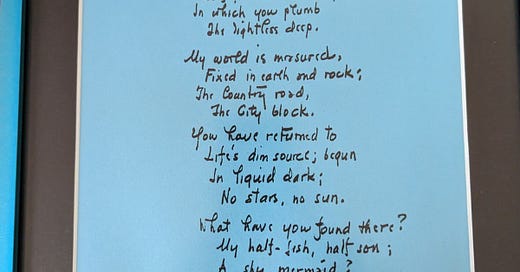 In which you plumb
The lightless deep.
My world is measured,
Fixed in earth and rock;
The Country road,
The City block.
You have returned to
Life's dim source; begun
In liquid dark;
No stars, no sun.
What have you found there?
My half-fish, half son;
A shy mermaid?